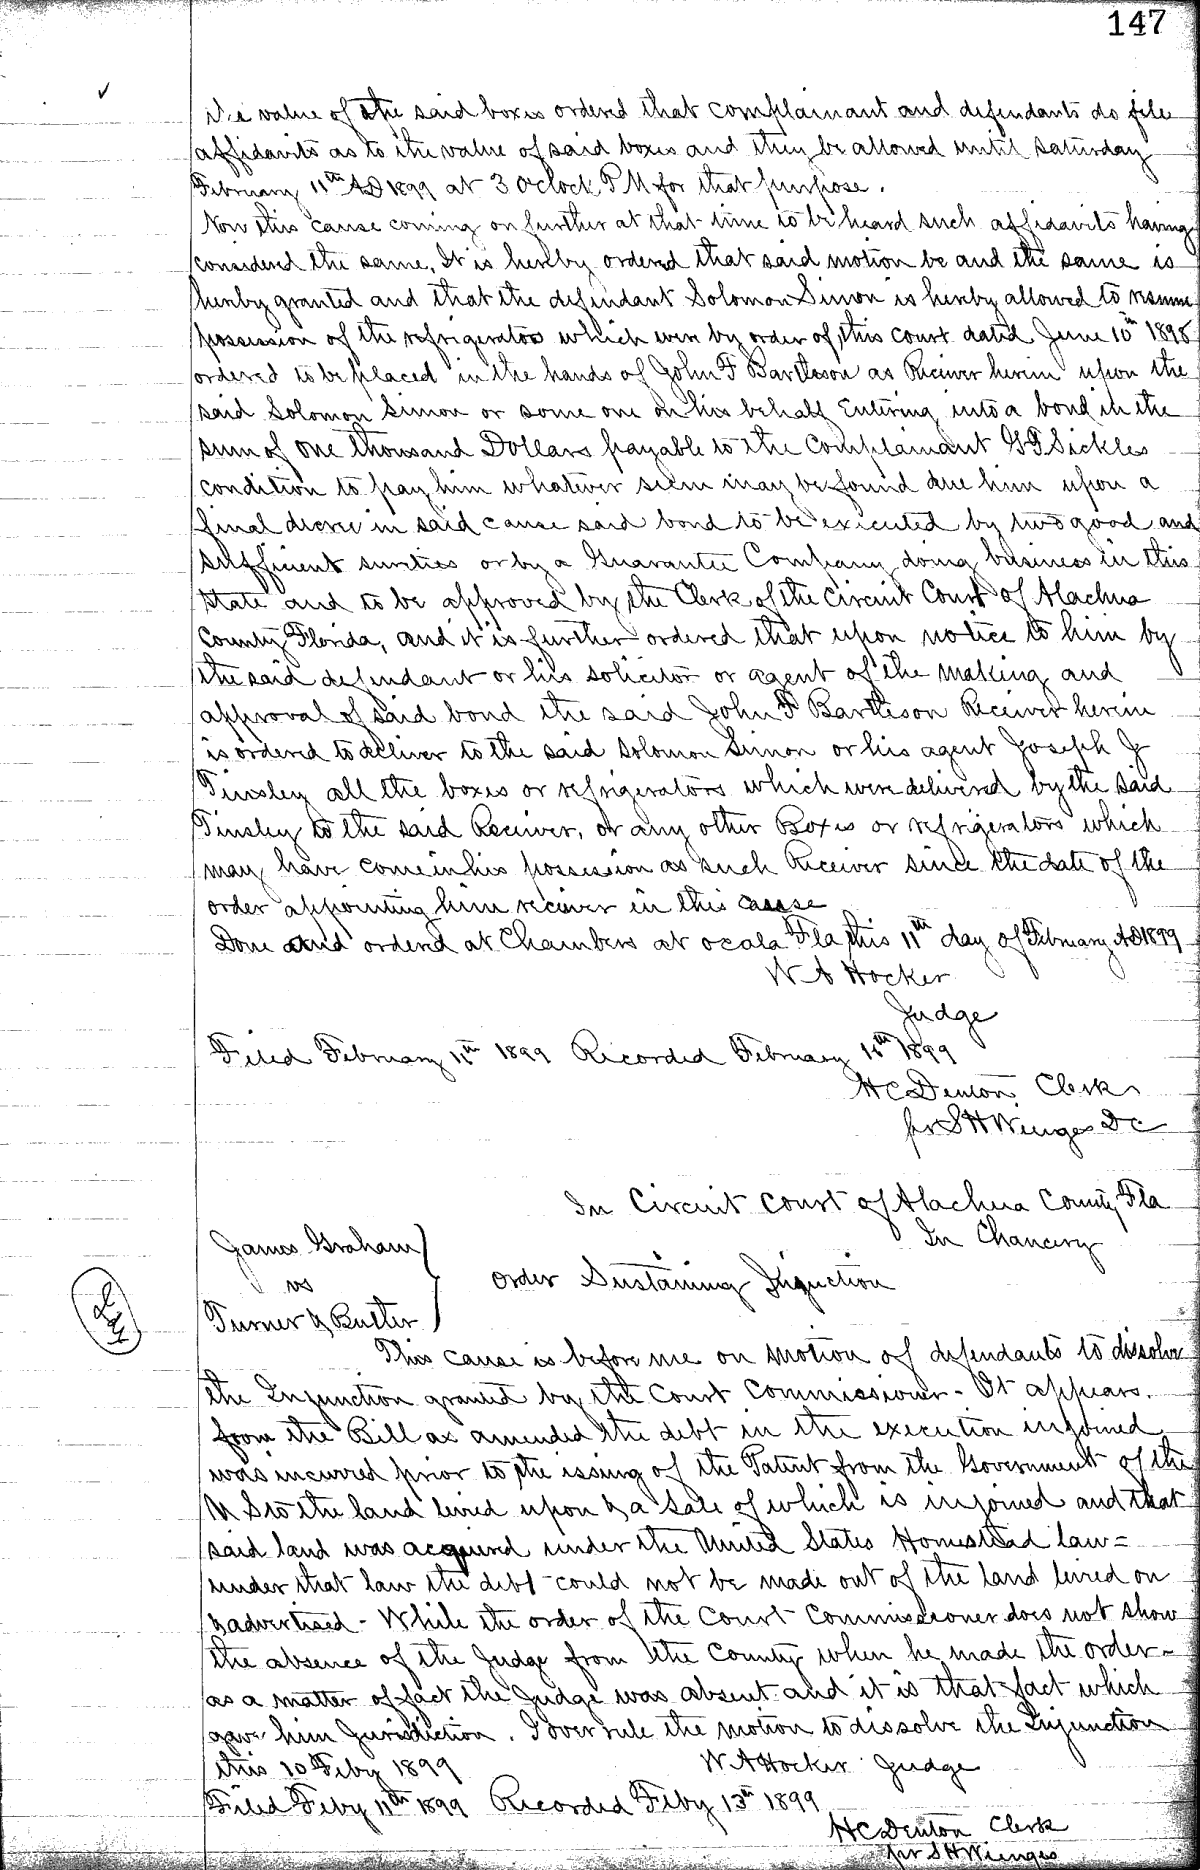 147
the value of the said boxes ordered that complainant and defendants do file
affidavits as to the value of said boxes and they be allowed until Saturday
February 11th AD 1899 at 3 oclock PM for that purpose.
Now this cause coming on further at that time to be heard such affidavits having
considered the same, It is hereby ordered that said motion be and the same is
hereby granted and that the defendant Solomon Simon is hereby allowed to resume
possession of the refrigerators which were by order of this court dated June 10th 1898
ordered to be placed in the hands of John F Bartleson as Receiver herein upon the
said Solomon Simon or some one on his behalf Entering into a bond in the
sum of one thousand Dollars payable to the Complainant Sickles
condition to pay him whatever sum may be found due him upon a
final decree in said cause said bond to be executed by two good and
sufficient sureties or by a Guarantee Company doing business in this
State and to be approved by the Clerk of the Circuit Court of Alachua
County Florida, and it is further ordered that upon notice to him by
the said defendant or his solicitor or agent of the making and
approval of said bond the said John F Bartleson Receiver herein
is ordered to deliver to the said Solomon Simon or his agent Joseph J
Tinsley all the boxes or refrigerators which were delivered by the said
Tinsley to the said Receiver, or any other Boxes or refrigerators which
may have come in his possession as such Receiver since the date of the
order appointing him reciver in this cause
Done and ordered at Chambers at ocala Fla this 11th day of February AD 1899
W A Hocker
Judge
Filed February 11th 1899 Recorded February 11th 1899
H C Denton Clerk
per S H Wienges D C
In Circuit Court of Alachua County Fla
In Chancery
James Graham
vs
Turner & Butler
order Sustaining Injunction
This cause is before me on motion of defendants to dissolve
the Injunction granted by the Court Commissioner - It appears
from the Bill as amended the debt in the execution injoined
was incurred prior to the issuing of the Patent from the Government of the
U S to the land levied upon & a sale of which is injoined and that
said land was acquired under the United States Homestead law =
under that law the debt could not be made out of the land levied on
& advertised - While the order of the Court Commissioner does not show
the absence of the Judge from the County when he made the order -
as a matter of fact the Judge was absent and it is that fact which
gave him Jurisdiction. I overrule the motion to dissolve the Injunction
this 10 Feby 1899
W A Hocker Judge
Filed Feby 11th 1899 Recorded Feby 13th 1899
H C Denton Clerk
per S H Wienges